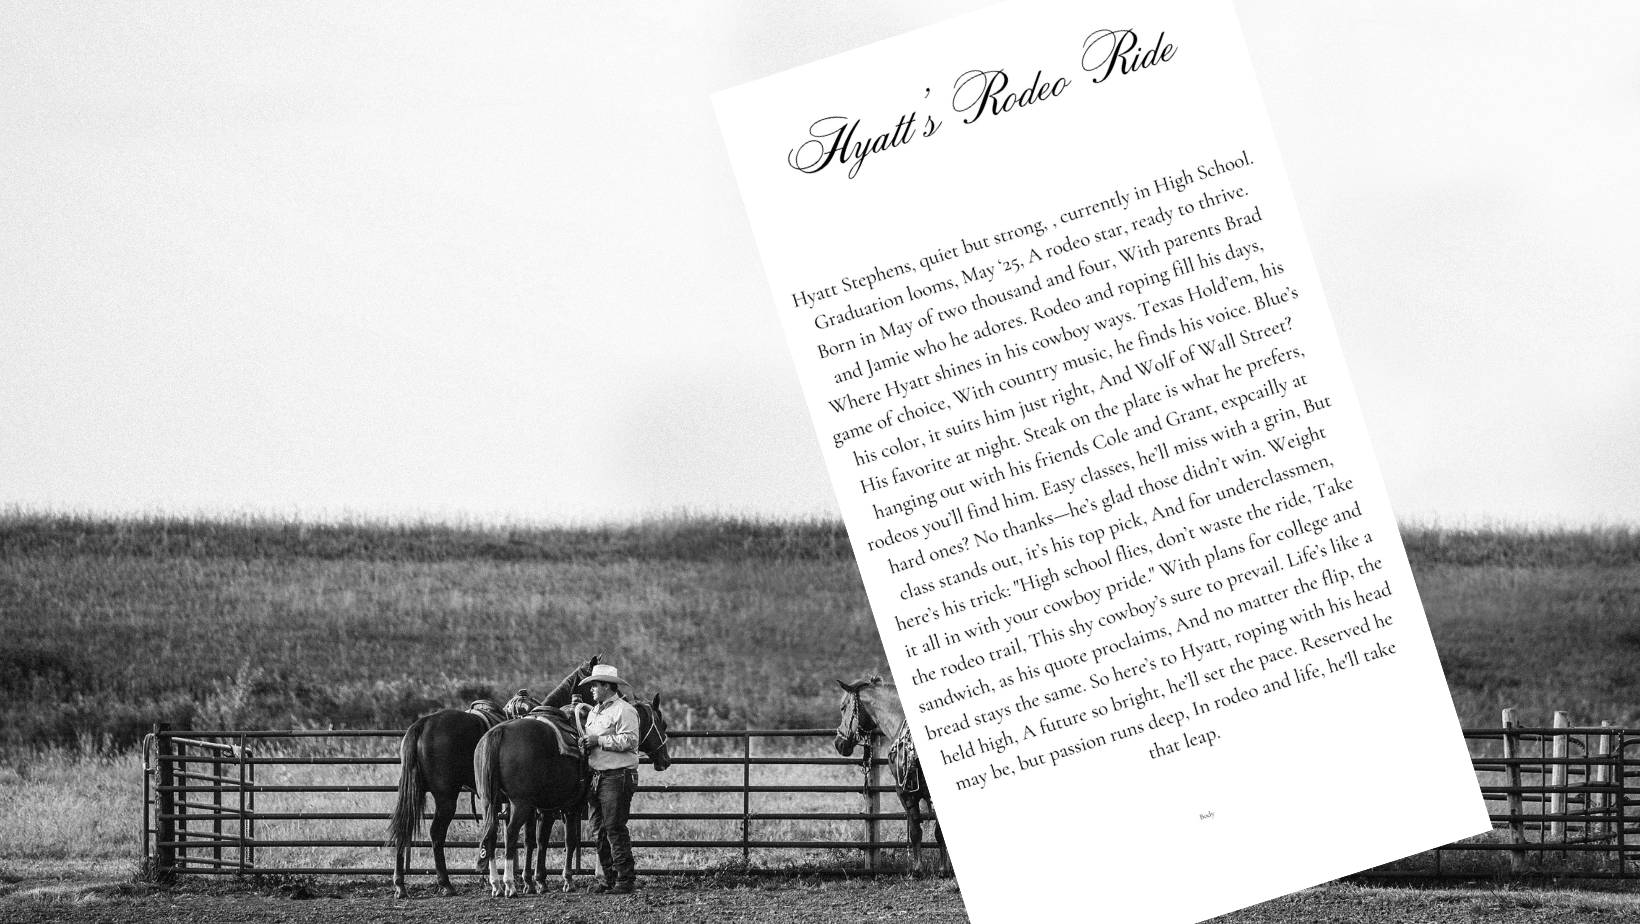 Hyatt's Rodeo Ride
Hyatt Stephens, quiet but strong, , currently in High School.
Graduation looms, May ‘25, A rodeo star, ready to thrive.
Born in May of two thousand and four, With parents Brad
and Jamie who he adores. Rodeo and roping fill his days,
Where Hyatt shines in his cowboy ways. Texas Hold’em, his
game of choice, With country music, he finds his voice. Blue’s
his color, it suits him just right, And Wolf of Wall Street?
His favorite at night. Steak on the plate is what he prefers,
hanging out with his friends Cole and Grant, expcailly at
rodeos you’ll find him. Easy classes, he’ll miss with a grin, But
hard ones? No thanks—he’s glad those didn’t win. Weight
class stands out, it’s his top pick, And for underclassmen,
here’s his trick: "High school flies, don’t waste the ride, Take
it all in with your cowboy pride." With plans for college and
the rodeo trail, This shy cowboy’s sure to prevail. Life’s like a
sandwich, as his quote proclaims, And no matter the flip, the
bread stays the same. So here’s to Hyatt, roping with his head
held high, A future so bright, he’ll set the pace. Reserved he
may be, but passion runs deep, In rodeo and life, he’ll take
that leap.
Body